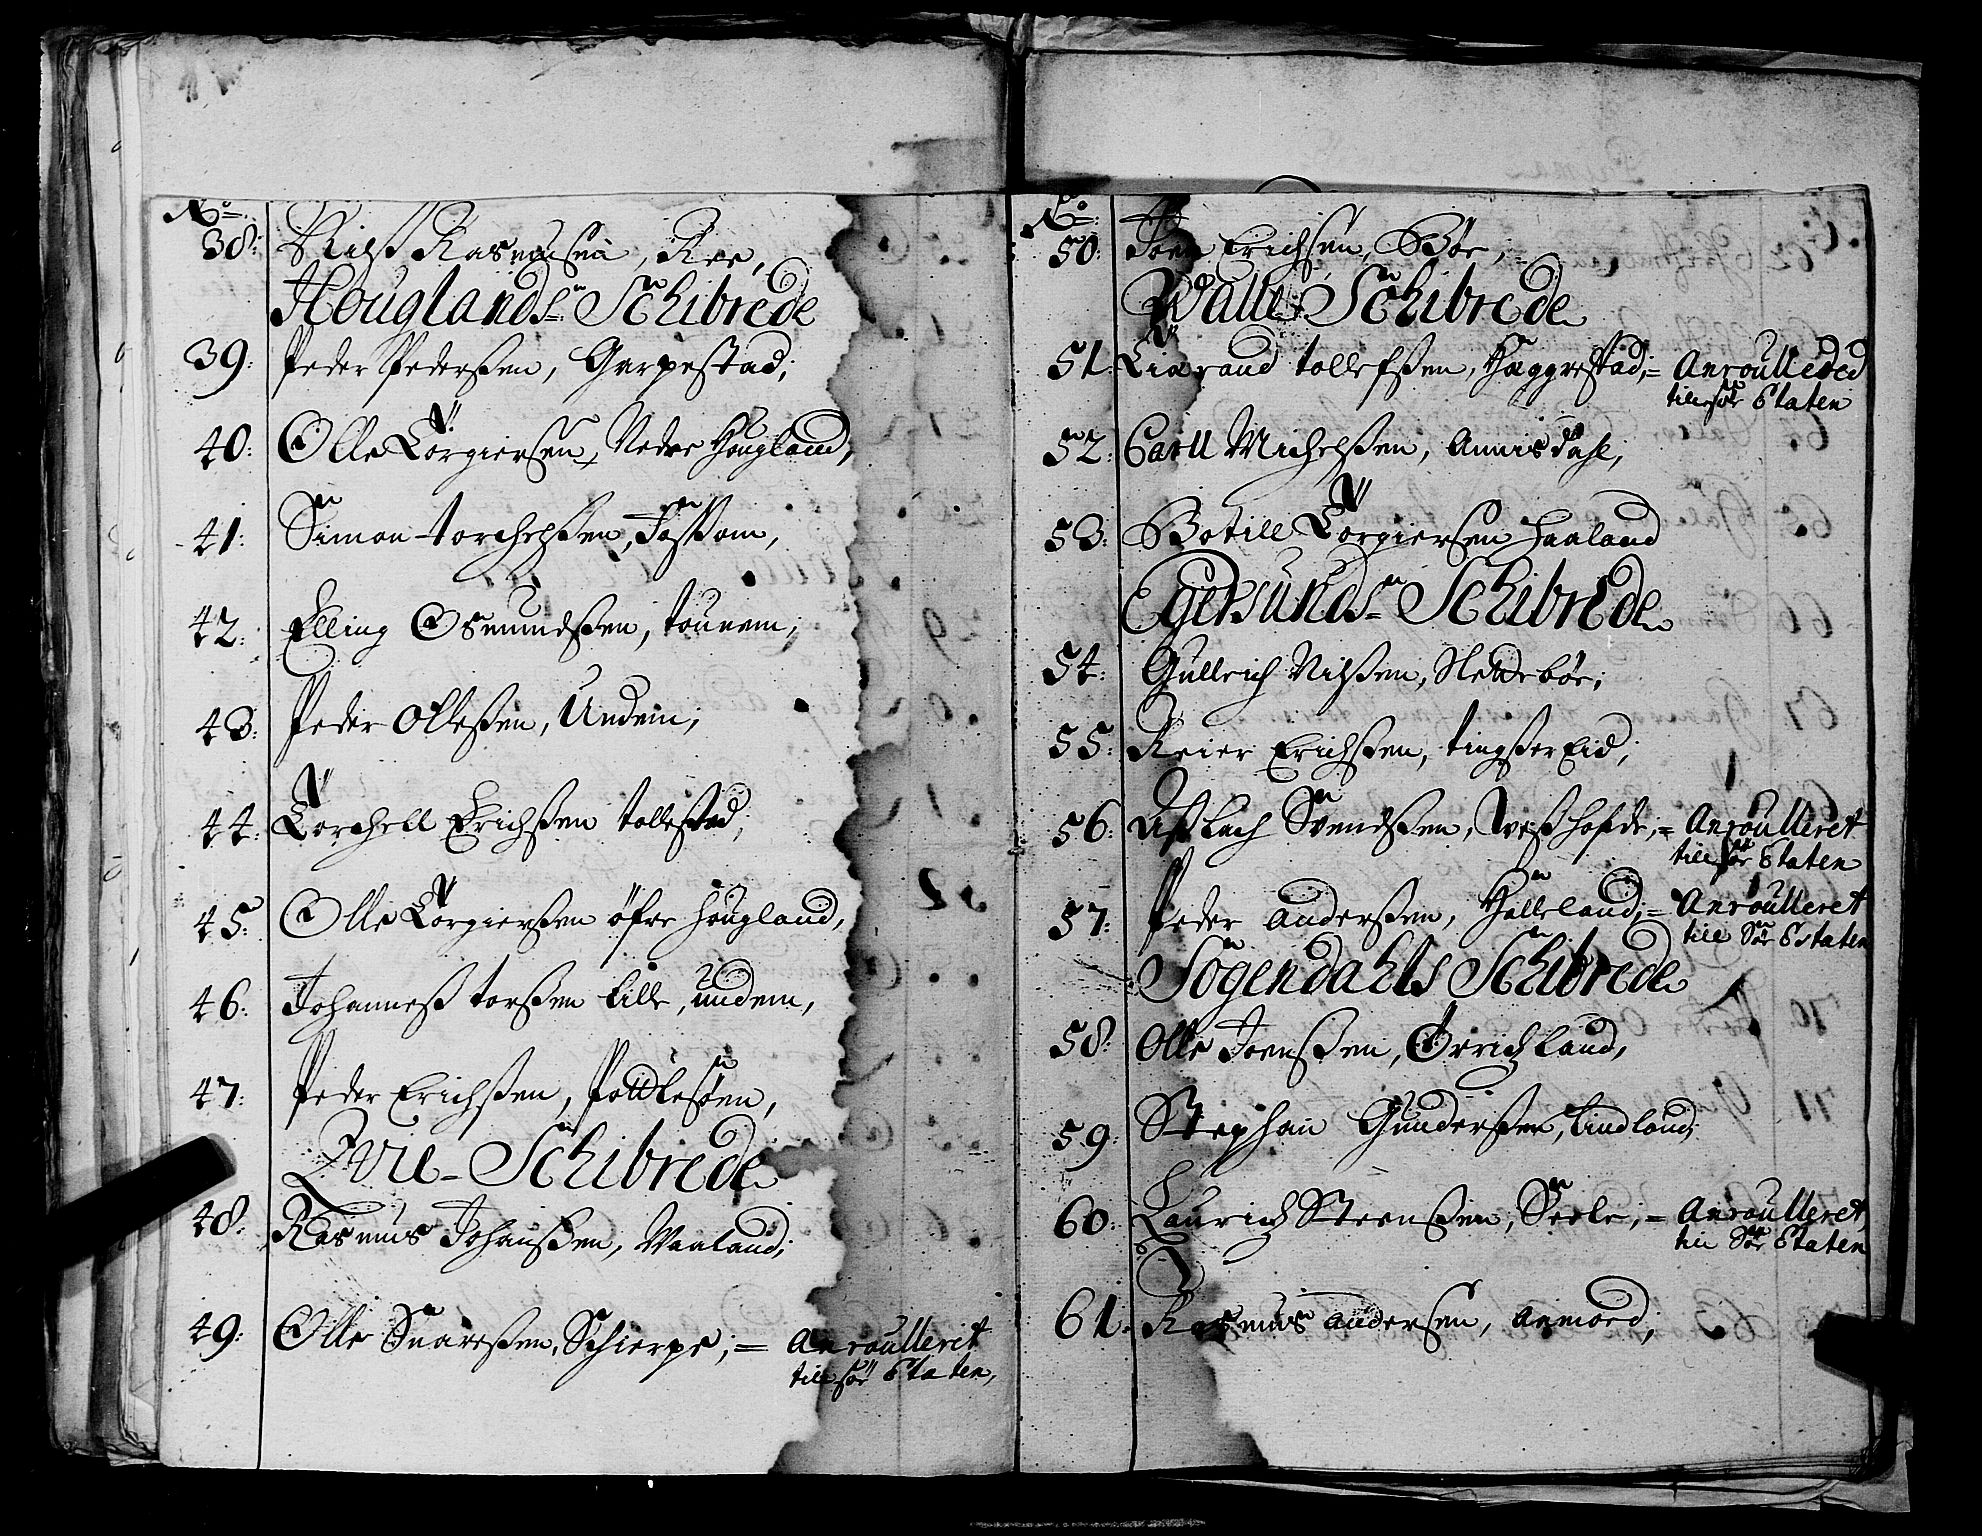 No.
38: Nielß Rasmusen, Ree,
Houglands Schibrede
39: Peder Pederßen, Garpestad;
40: Olle Torgiersen, Nedre Hougland,
41: Simon torchelßen, Foßom,
42: Elling Osmundßen, tounem;
43: Peder Olleßen, Undem;
44: Torchell Erichßen tollestad;
45. Olle Torgierßen öfre hougland,
46: Johanneß torßen lille, undem,
47: Peder Erichßen,
Schibrede
48: Rasmus Johanßen, Waaland;
49: Olle Snareßen, Schierpe; = Anroulleret
till sör Etaten,
No.
50: Joen Erichsen, Böe;
Walle Schibrede
51. Livrand tollefßen, Hæggrestad; = Anroulleded
till sör Etaten
52: Carll Michelßen, Annisdahl;
53: Botill Torgiersen haaland
Egersunds Schibrede
54: Gullrich Nilßen, Sletteböe;
55: Reier Erichßen, tingßer Eid;
56: Aßlach Svendßen, = Anroulleret
till sör Etaten
57: Peder Anderßen, Hölleland; = Anroulleret
till Sör Estaten
Sögendahls Schibrede
58: Olle Joenßen, Orrichland,
59: Stephan Gunderßen, Lindland;
60: Laurich Steenßen, Seele; = Anroulleret,
till Sör Etaten
61. Rasmus andersen, Aamoed;